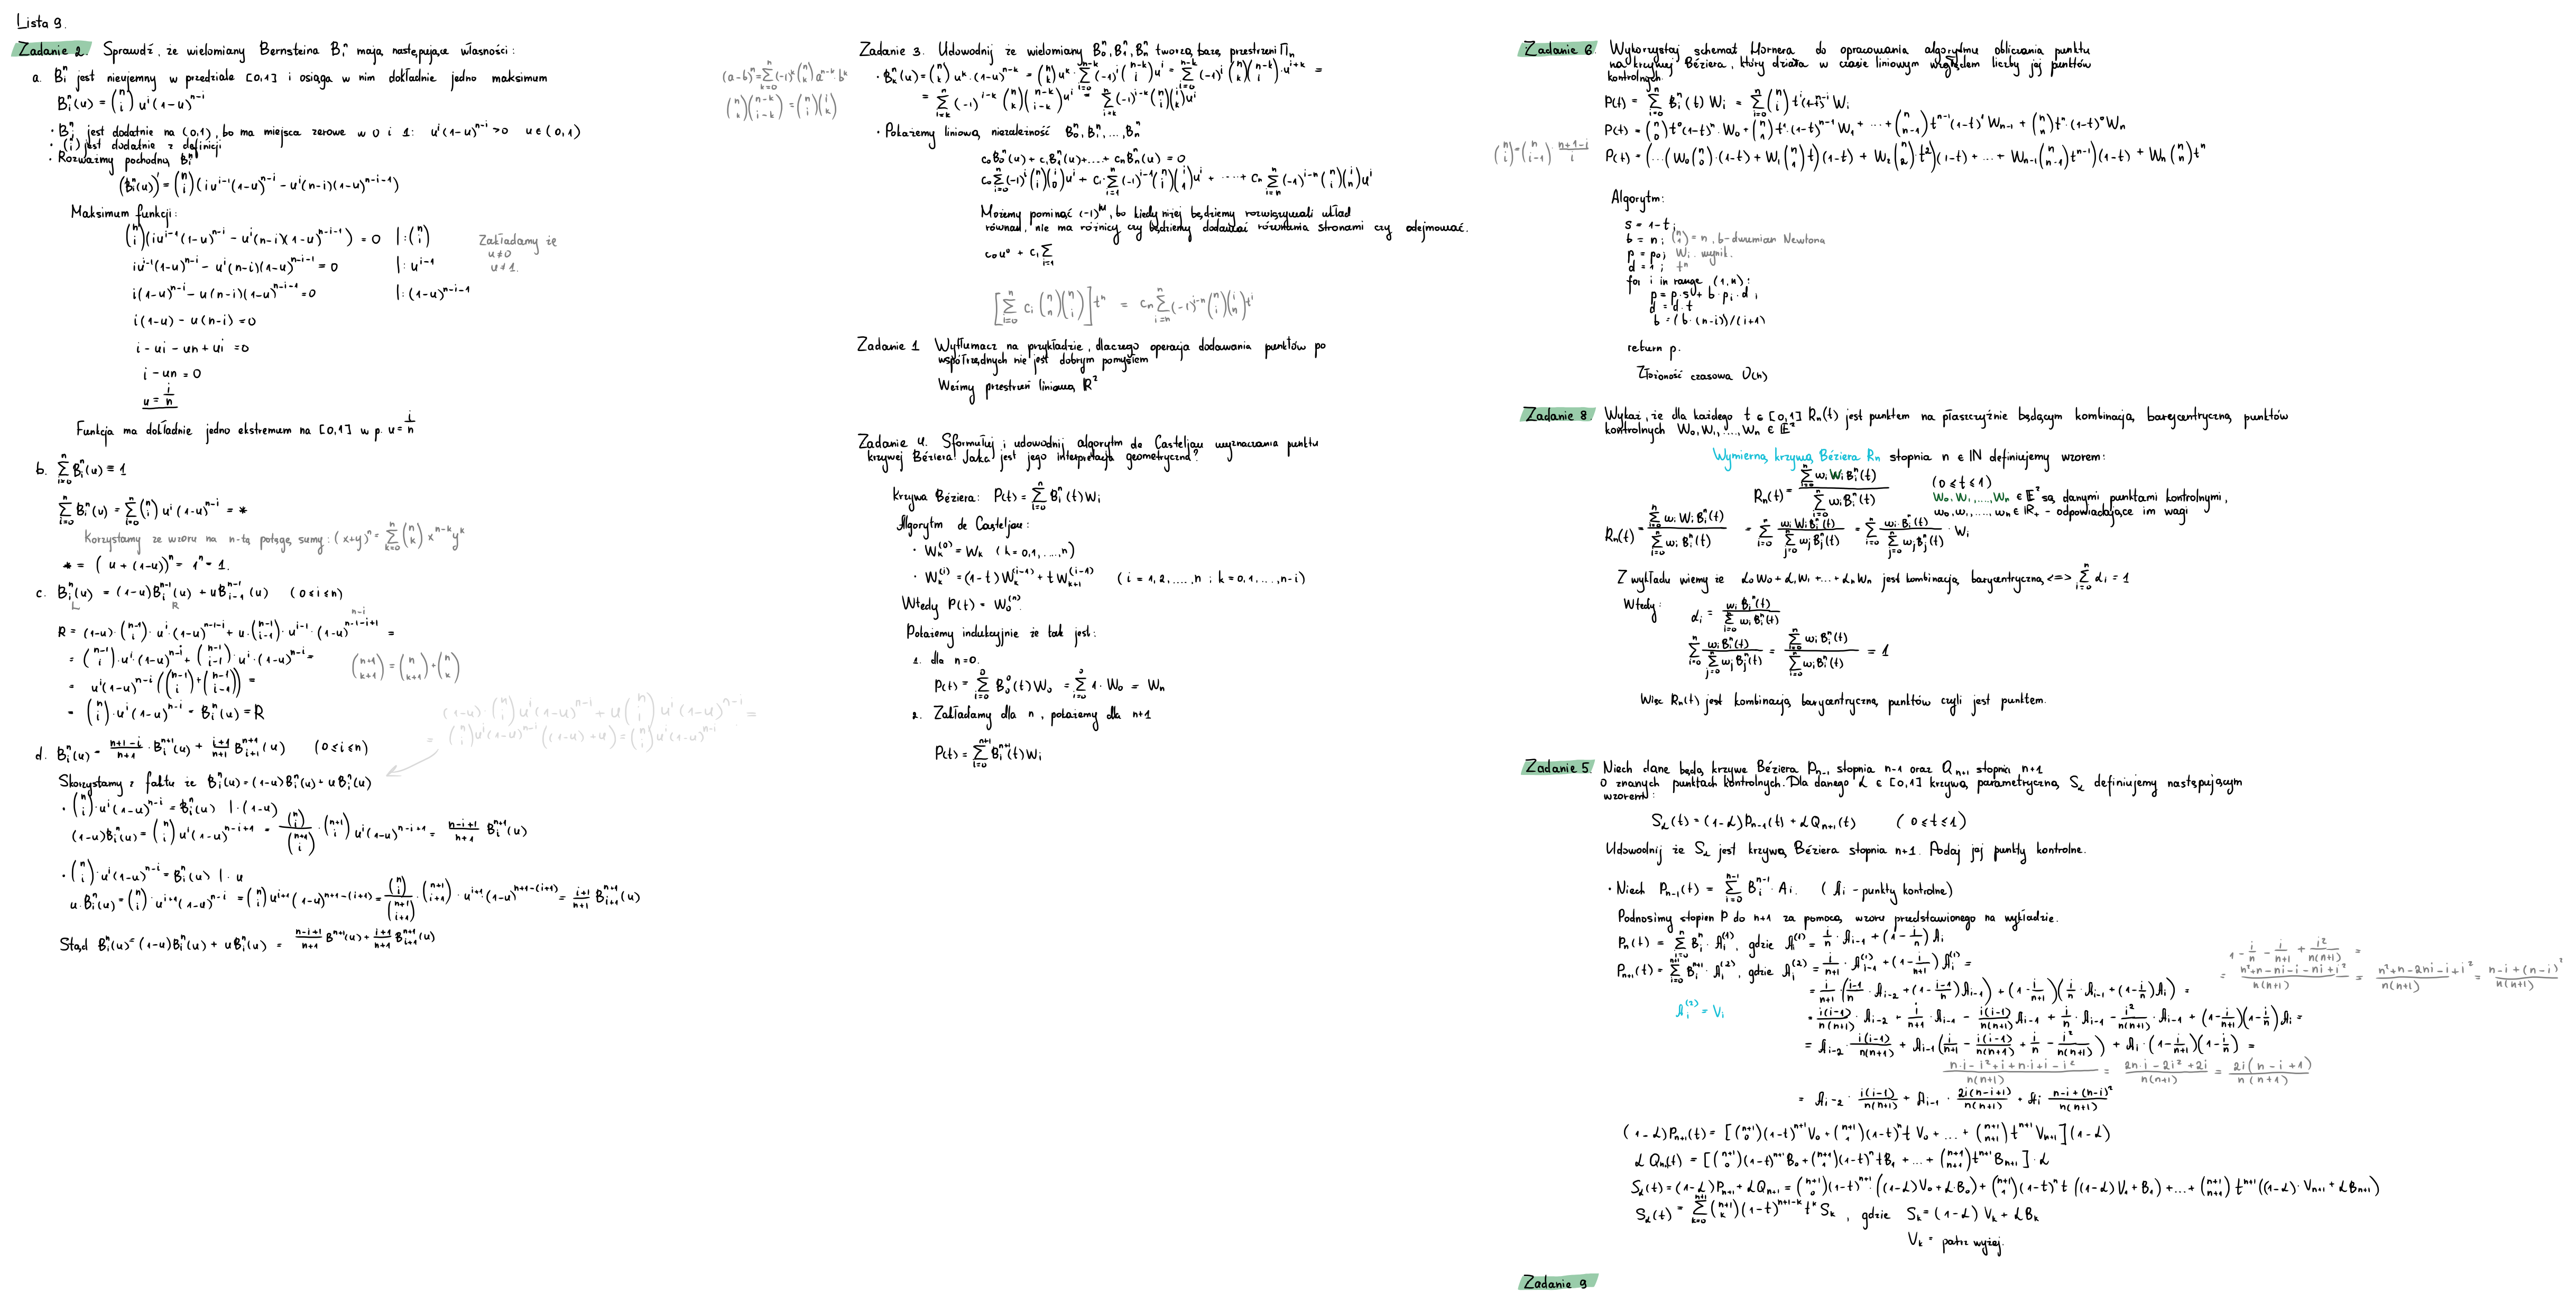 Lista 9.
Zadanie 2. Sprawdź, że wielomiany Bernsteina Bᵢⁿ mają następujące własności:
a. Bᵢⁿ jest nieujemny w przedziale [0,1] i osiąga w nim dokładnie jedno maksimum
Bᵢⁿ(u) = (n i) uⁱ(1-u)ⁿ⁻ⁱ
· Bᵢⁿ jest dodatnie na (0,1), bo ma miejsca zerowe w 0 i 1: uⁱ(1-u)ⁿ⁻ⁱ > 0 u∈(0,1)
· (n i) jest dodatnie z definicji
· Rozważmy pochodną Bᵢⁿ
(Bᵢⁿ(u))' = (n i)(iuⁱ⁻¹(1-u)ⁿ⁻ⁱ - uⁱ(n-i)(1-u)ⁿ⁻ⁱ⁻¹)
Maksimum funkcji:
(n i)(iuⁱ⁻¹(1-u)ⁿ⁻ⁱ - uⁱ(n-i)(1-u)ⁿ⁻ⁱ⁻¹) = 0 |:(n i)
Zakładamy że
u≠0
u≠1.
iuⁱ⁻¹(1-u)ⁿ⁻ⁱ - uⁱ(n-i)(1-u)ⁿ⁻ⁱ⁻¹ = 0 |: uⁱ⁻¹
i(1-u)ⁿ⁻ⁱ - u(n-i)(1-u)ⁿ⁻ⁱ⁻¹ = 0 |: (1-u)ⁿ⁻ⁱ⁻¹
i(1-u) - u(n-i) = 0
i - ui - un + ui = 0
i - un = 0
u = i/n
Funkcja ma dokładnie jedno ekstremum na [0,1] w p. u = i/n
b. ∑ᵢ₌₀ⁿ Bᵢⁿ(u) ≡ 1
∑ᵢ₌₀ⁿ Bᵢⁿ(u) = ∑ᵢ₌₀ⁿ (n i) uⁱ(1-u)ⁿ⁻ⁱ = *
Korzystamy ze wzoru na n-tą potęgę sumy: (x+y)ⁿ = ∑ₖ₌₀ⁿ (n k) xⁿ⁻ᵏyᵏ
* = (u + (1-u))ⁿ = 1ⁿ = 1.
c. Bᵢⁿ(u) = (1-u)Bᵢⁿ⁻¹(u) + uBᵢ₋₁ⁿ⁻¹(u) (0≤i≤n)
L R
n-i
R = (1-u)·(n-1 i)·uⁱ·(1-u)ⁿ⁻¹⁻ⁱ + u·(n-1 i-1)·uⁱ⁻¹·(1-u)ⁿ⁻¹⁻ⁱ⁺¹ =
= (n-1 i)·uⁱ·(1-u)ⁿ⁻ⁱ + (n-1 i-1)·uⁱ·(1-u)ⁿ⁻ⁱ =
(n+1 k+1) = (n k+1) + (n k)
= uⁱ(1-u)ⁿ⁻ⁱ((n-1 i) + (n-1 i-1)) =
= (n i)·uⁱ(1-u)ⁿ⁻ⁱ = Bᵢⁿ(u) = R
(1-u)·(n i) uⁱ(1-u)ⁿ⁻ⁱ + u(n i) uⁱ(1-u)ⁿ⁻ⁱ =
= (n i)uⁱ(1-u)ⁿ⁻ⁱ((1-u)+u) = (n i)uⁱ(1-u)ⁿ⁻ⁱ
d. Bᵢⁿ(u) = (n+1-i)/(n+1) · Bᵢⁿ⁺¹(u) + (i+1)/(n+1) Bᵢ₊₁ⁿ⁺¹(u) (0≤i≤n)
Skorzystamy z faktu że Bᵢⁿ(u) = (1-u)Bᵢⁿ(u) + uBᵢⁿ(u)
· (n i)·uⁱ(1-u)ⁿ⁻ⁱ = Bᵢⁿ(u) |·(1-u)
(1-u)Bᵢⁿ(u) = (n i) uⁱ(1-u)ⁿ⁻ⁱ⁺¹ = (n i)/(n+1 i) · (n+1 i) uⁱ(1-u)ⁿ⁻ⁱ⁺¹ = (n-i+1)/(n+1) Bᵢⁿ⁺¹(u)
· (n i)·uⁱ(1-u)ⁿ⁻ⁱ = Bᵢⁿ(u) |·u
u·Bᵢⁿ(u) = (n i)·uⁱ⁺¹(1-u)ⁿ⁻ⁱ = (n i)uⁱ⁺¹(1-u)ⁿ⁺¹⁻⁽ⁱ⁺¹⁾ = (n i)/(n+1 i+1)·(n+1 i+1)·uⁱ⁺¹·(1-u)ⁿ⁺¹⁻⁽ⁱ⁺¹⁾ = (i+1)/(n+1) Bᵢ₊₁ⁿ⁺¹(u)
Stąd Bᵢⁿ(u) = (1-u)Bᵢⁿ(u) + uBᵢⁿ(u) = (n-i+1)/(n+1) Bⁿ⁺¹(u) + (i+1)/(n+1) Bᵢ₊₁ⁿ⁺¹(u)
Zadanie 3. Udowodnij że wielomiany B₀ⁿ, B₁ⁿ, Bₙⁿ tworzą bazę przestrzeni Πₙ
(a-b)ⁿ = ∑ₖ₌₀ⁿ(-1)ᵏ(n k) aⁿ⁻ᵏ bᵏ
(n k)(n-k i-k) = (n i)(i k)
· Bₖⁿ(u) = (n k) uᵏ·(1-u)ⁿ⁻ᵏ = (n k) uᵏ·∑ᵢ₌₀ⁿ⁻ᵏ(-1)ⁱ(n-k i)uⁱ = ∑ᵢ₌₀ⁿ⁻ᵏ(-1)ⁱ (n k)(n-k i)·uⁱ⁺ᵏ =
= ∑ᵢ₌ₖⁿ (-1)ⁱ⁻ᵏ (n k)(n-k i-k)uⁱ = ∑ᵢ₌ₖⁿ(-1)ⁱ⁻ᵏ(n i)(i k)uⁱ
· Pokażemy liniową niezależność B₀ⁿ, B₁ⁿ, ..., Bₙⁿ
c₀B₀ⁿ(u) + c₁B₁ⁿ(u) + .... + cₙBₙⁿ(u) = 0
c₀∑ᵢ₌₀ⁿ(-1)ⁱ(n i)(i 0)uⁱ + c₁∑ᵢ₌₁ⁿ(-1)ⁱ⁻¹(n i)(i 1)uⁱ + ···· + cₙ∑ᵢ₌ₙⁿ(-1)ⁱ⁻ⁿ(n i)(i n)uⁱ
Możemy pominąć (-1)ᴹ, bo kiedy niżej będziemy rozwiązywali układ
równań, nie ma różnicy czy będziemy dodawać równania stronami czy odejmować.
c₀u⁰ + c₁∑ᵢ₌₁ⁿ
[∑ᵢ₌₀ⁿ cᵢ (n n)(n i)]tⁿ = cₙ∑ᵢ₌ₙⁿ(-1)ⁱ⁻ⁿ(n i)(i n)tⁱ
Zadanie 1 Wytłumacz na przykładzie, dlaczego operacja dodawania punktów po
współrzędnych nie jest dobrym pomysłem
Weźmy przestrzeń liniową R²
Zadanie 4. Sformułuj i udowodnij algorytm de Casteljau wyznaczania punktu
krzywej Béziera. Jaka jest jego interpretacja geometryczna?
Krzywa Béziera: P(t) = ∑ᵢ₌₀ⁿ Bᵢⁿ(t)Wᵢ
Algorytm de Casteljau:
· Wₖ⁽⁰⁾ = Wₖ (k = 0,1,....,n)
· Wₖ⁽ⁱ⁾ = (1-t)Wₖ⁽ⁱ⁻¹⁾ + tWₖ₊₁⁽ⁱ⁻¹⁾ (i = 1,2,....,n ; k = 0,1,...,n-i)
Wtedy P(t) = W₀⁽ⁿ⁾.
Pokażemy indukcyjnie że tak jest:
1. dla n=0.
P(t) = ∑ᵢ₌₀⁰ B₀⁰(t)W₀ = ∑ᵢ₌₀⁰ 1·W₀ = Wₙ
2. Zakładamy dla n, pokażemy dla n+1
P(t) = ∑ᵢ₌₀ⁿ⁺¹ Bᵢⁿ⁺¹(t)Wᵢ
Zadanie 6 Wykorzystaj schemat Hornera do opracowania algorytmu obliczania punktu
na krzywej Béziera, który działa w czasie liniowym względem liczby jej punktów
kontrolnych.
P(t) = ∑ᵢ₌₀ⁿ Bᵢⁿ(t) Wᵢ = ∑ᵢ₌₀ⁿ(n i) tⁱ(1-t)ⁿ⁻ⁱ Wᵢ
P(t) = (n 0)t⁰(1-t)ⁿ·W₀ + (n 1)t¹·(1-t)ⁿ⁻¹W₁ + ... + (n n-1)tⁿ⁻¹(1-t)¹Wₙ₋₁ + (n n)tⁿ·(1-t)⁰Wₙ
(n i) = (n i-1)·(n+1-i)/i
P(t) = (...(W₀(n 0)·(1-t) + W₁(n 1)t)(1-t) + W₂(n 2)·t²)(1-t) + ... + Wₙ₋₁(n n-1)tⁿ⁻¹)(1-t) + Wₙ(n n)tⁿ
Algorytm:
s = 1-t;
b = n; (n 1) = n, b-dwumian Newtona
p = p₀; Wᵢ, wynik.
d = 1; tⁿ
for i in range (1,n):
p = p·s + b·pᵢ·d;
d = d·t
b = (b·(n-i))/(i+1)
return p.
Złożoność czasowa O(n)
Zadanie 8 Wykaż, że dla każdego t ∈ [0,1] Rₙ(t) jest punktem na płaszczyźnie będącym kombinacją barycentryczną punktów
kontrolnych W₀,W₁,....,Wₙ ∈ E²
Wymierną krzywą Béziera Rₙ stopnia n ∈ IN definiujemy wzorem:
Rₙ(t) = ∑ᵢ₌₀ⁿ wᵢWᵢBᵢⁿ(t) / ∑ᵢ₌₀ⁿ wᵢBᵢⁿ(t) (0≤t≤1)
W₀,W₁,....,Wₙ ∈ E² są danymi punktami kontrolnymi,
w₀,w₁,....,wₙ ∈ IR₊ - odpowiadające im wagi
Rₙ(t) = ∑ᵢ₌₀ⁿ wᵢWᵢBᵢⁿ(t) / ∑ᵢ₌₀ⁿ wᵢBᵢⁿ(t) = ∑ᵢ₌₀ⁿ wᵢWᵢBᵢⁿ(t) / ∑ⱼ₌₀ⁿ wⱼBⱼⁿ(t) = ∑ᵢ₌₀ⁿ wᵢ·Bᵢⁿ(t) / ∑ⱼ₌₀ⁿ wⱼBⱼⁿ(t) · Wᵢ
Z wykładu wiemy że α₀W₀ + α₁W₁ + ... + αₙWₙ jest kombinacją barycentryczną <=> ∑ᵢ₌₀ⁿ αᵢ = 1
Wtedy: αᵢ = wᵢBᵢⁿ(t) / ∑ᵢ₌₀ⁿ wᵢBᵢⁿ(t)
∑ᵢ₌₀ⁿ wᵢBᵢⁿ(t) / ∑ⱼ₌₀ⁿ wⱼBⱼⁿ(t) = ∑ᵢ₌₀ⁿ wᵢBᵢⁿ(t) / ∑ᵢ₌₀ⁿ wᵢBᵢⁿ(t) = 1
Więc Rₙ(t) jest kombinacją barycentryczną punktów czyli jest punktem.
Zadanie 5. Niech dane będą krzywe Béziera Pₙ₋₁ stopnia n-1 oraz Qₙ₊₁ stopnia n+1
o znanych punktach kontrolnych. Dla danego α ∈ [0,1] krzywą parametryczną S_α definiujemy następującym
wzorem:
S_α(t) = (1-α)Pₙ₋₁(t) + αQₙ₊₁(t) (0≤t≤1)
Udowodnij że S_α jest krzywą Béziera stopnia n+1. Podaj jej punkty kontrolne.
· Niech Pₙ₋₁(t) = ∑ᵢ₌₀ⁿ⁻¹ Bᵢⁿ⁻¹·Aᵢ. (Aᵢ - punkty kontrolne)
Podnosimy stopień P do n+1 za pomocą wzoru przedstawionego na wykładzie.
Pₙ(t) = ∑ᵢ₌₀ⁿ Bᵢⁿ·Aᵢ⁽¹⁾, gdzie Aᵢ⁽¹⁾ = i/n·Aᵢ₋₁ + (1-i/n)Aᵢ
Pₙ₊₁(t) = ∑ᵢ₌₀ⁿ⁺¹ Bᵢⁿ⁺¹·Aᵢ⁽²⁾, gdzie Aᵢ⁽²⁾ = i/(n+1)·Aᵢ₋₁⁽¹⁾ + (1-i/(n+1))Aᵢ⁽¹⁾ =
1 - i/n - i/(n+1) + i²/(n(n+1)) =
= (n²+n-ni-i-ni+i²)/(n(n+1)) = (n²+n-2ni-i+i²)/(n(n+1)) = (n-i+(n-i)²)/(n(n+1))
= i/(n+1)·((i-1)/n·Aᵢ₋₂ + (1-(i-1)/n)Aᵢ₋₁) + (1-i/(n+1))(i/n·Aᵢ₋₁ + (1-i/n)Aᵢ) =
Aᵢ⁽²⁾ = Vᵢ
= i(i-1)/(n(n+1))·Aᵢ₋₂ + i/(n+1)·Aᵢ₋₁ - i(i-1)/(n(n+1))Aᵢ₋₁ + i/n·Aᵢ₋₁ - i²/(n(n+1))·Aᵢ₋₁ + (1-i/(n+1))(1-i/n)Aᵢ =
= Aᵢ₋₂·i(i-1)/(n(n+1)) + Aᵢ₋₁(i/(n+1) - i(i-1)/(n(n+1)) + i/n - i²/(n(n+1))) + Aᵢ·(1-i/(n+1))(1-i/n) =
(n·i-i²+i+n·i+i-i²)/(n(n+1)) = (2n·i-2i²+2i)/(n(n+1)) = 2i(n-i+1)/(n(n+1))
= Aᵢ₋₂·i(i-1)/(n(n+1)) + Aᵢ₋₁·2i(n-i+1)/(n(n+1)) + Aᵢ (n-i+(n-i)²)/(n(n+1))
(1-α)Pₙ₊₁(t) = [(n+1 0)(1-t)ⁿ⁺¹V₀ + (n+1 1)(1-t)ⁿt V₀ + ... + (n+1 n+1)tⁿ⁺¹Vₙ₊₁](1-α)
αQₙ₊₁(t) = [(n+1 0)(1-t)ⁿ⁺¹B₀ + (n+1 1)(1-t)ⁿtB₁ + ... + (n+1 n+1)tⁿ⁺¹Bₙ₊₁]·α
S_α(t) = (1-α)Pₙ₊₁ + αQₙ₊₁ = (n+1 0)(1-t)ⁿ⁺¹·((1-α)V₀ + α·B₀) + (n+1 1)(1-t)ⁿt((1-α)V₁ + B₁) + ... + (n+1 n+1)tⁿ⁺¹((1-α)·Vₙ₊₁ + αBₙ₊₁)
S_α(t) = ∑ₖ₌₀ⁿ⁺¹(n+1 k)(1-t)ⁿ⁺¹⁻ᵏtᵏSₖ, gdzie Sₖ = (1-α)Vₖ + αBₖ
Vₖ = patrz wyżej.
Zadanie 9